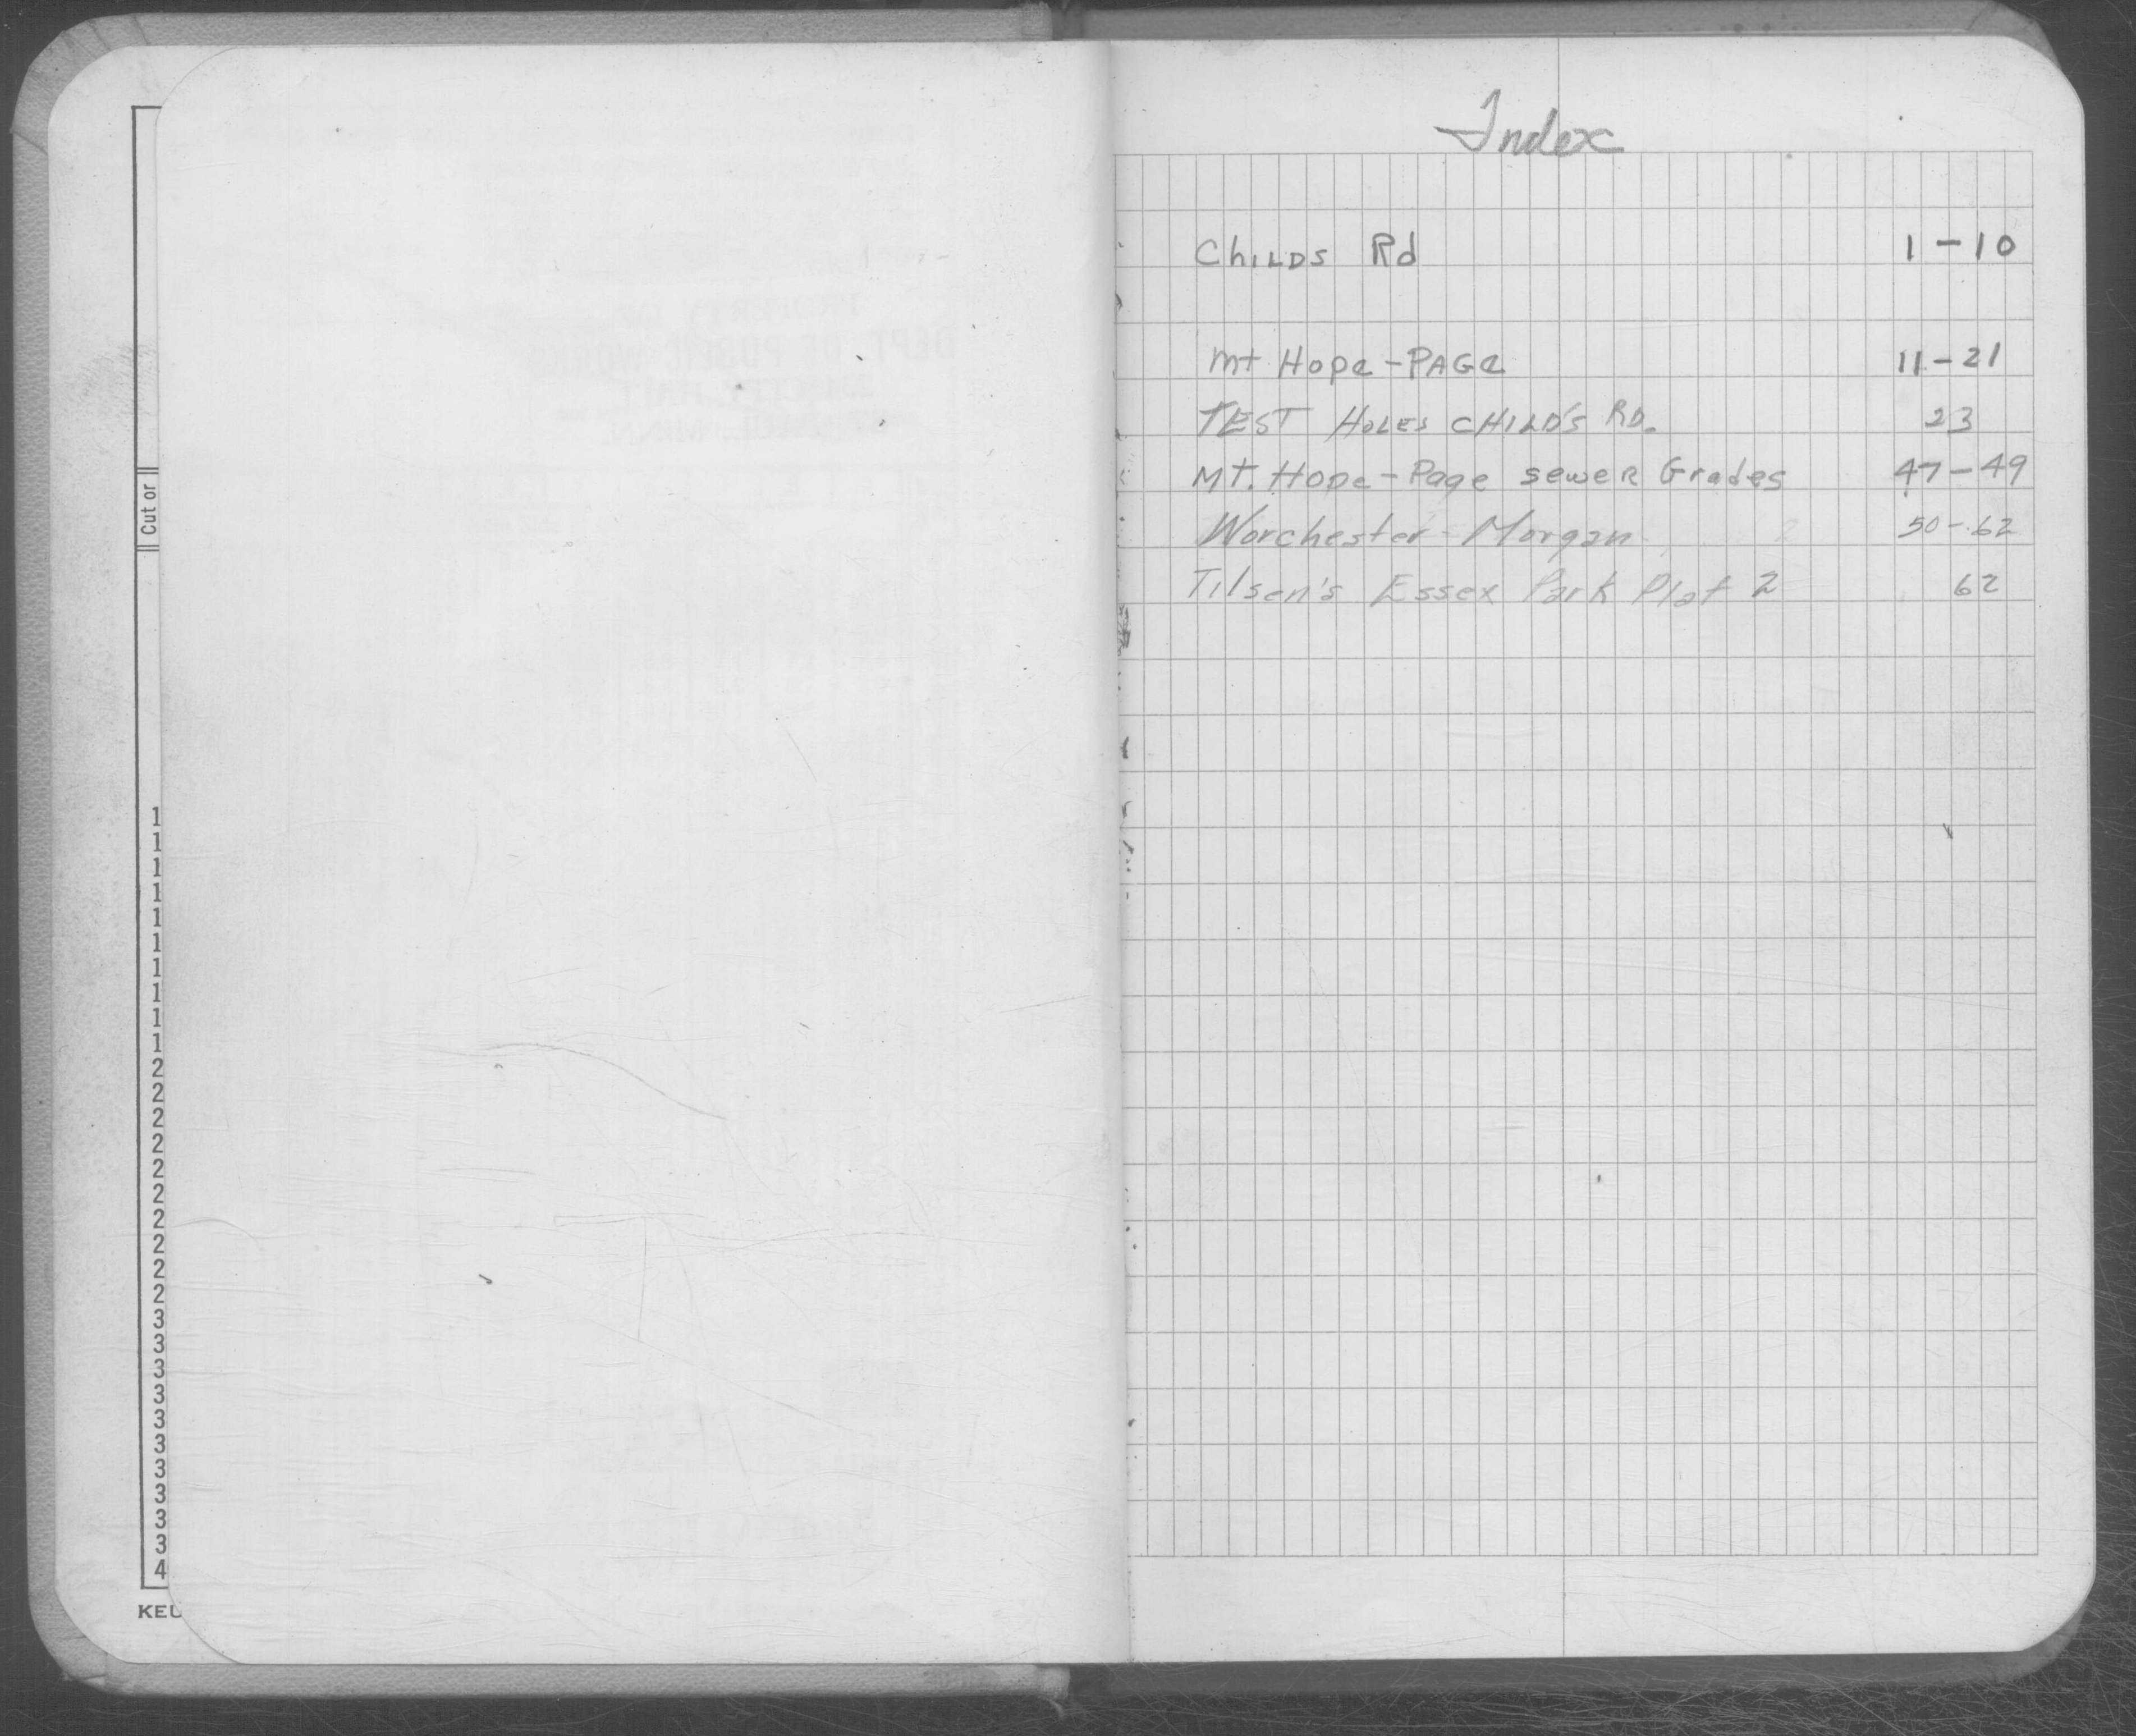 Cut or
1
1
1
1
1
1
1
1
1
1
2
2
2
2
2
2
2
2
2
2
3
3
3
3
3
3
3
3
3
3
4
KEU
Index
Childs Rd 1-10
Mt Hope-PAGE 11-21
TEST HOLES CHILD'S RD. 23
MT. Hope-Page sewer Grades 47-49
Worchester-Morgan 50-62
Tilsen's Essex Park Plat 2 62